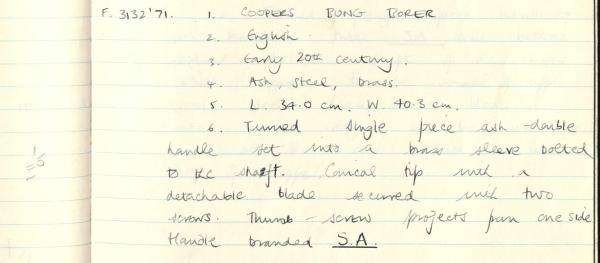 F. 3132'71. 1. COOPERS BUNG BORER
2. English.
3. Early 20th century.
4. Ash, steel, brass.
5. L. 34.0 cm. W. 40.3 cm.
6. Turned single piece ash -double
handle set into a brass sleeve bolted
to the shaft. Conical tip with a
detachable blade secured with two
screws. Thumb-screw projects from one side
Handle branded S.A.